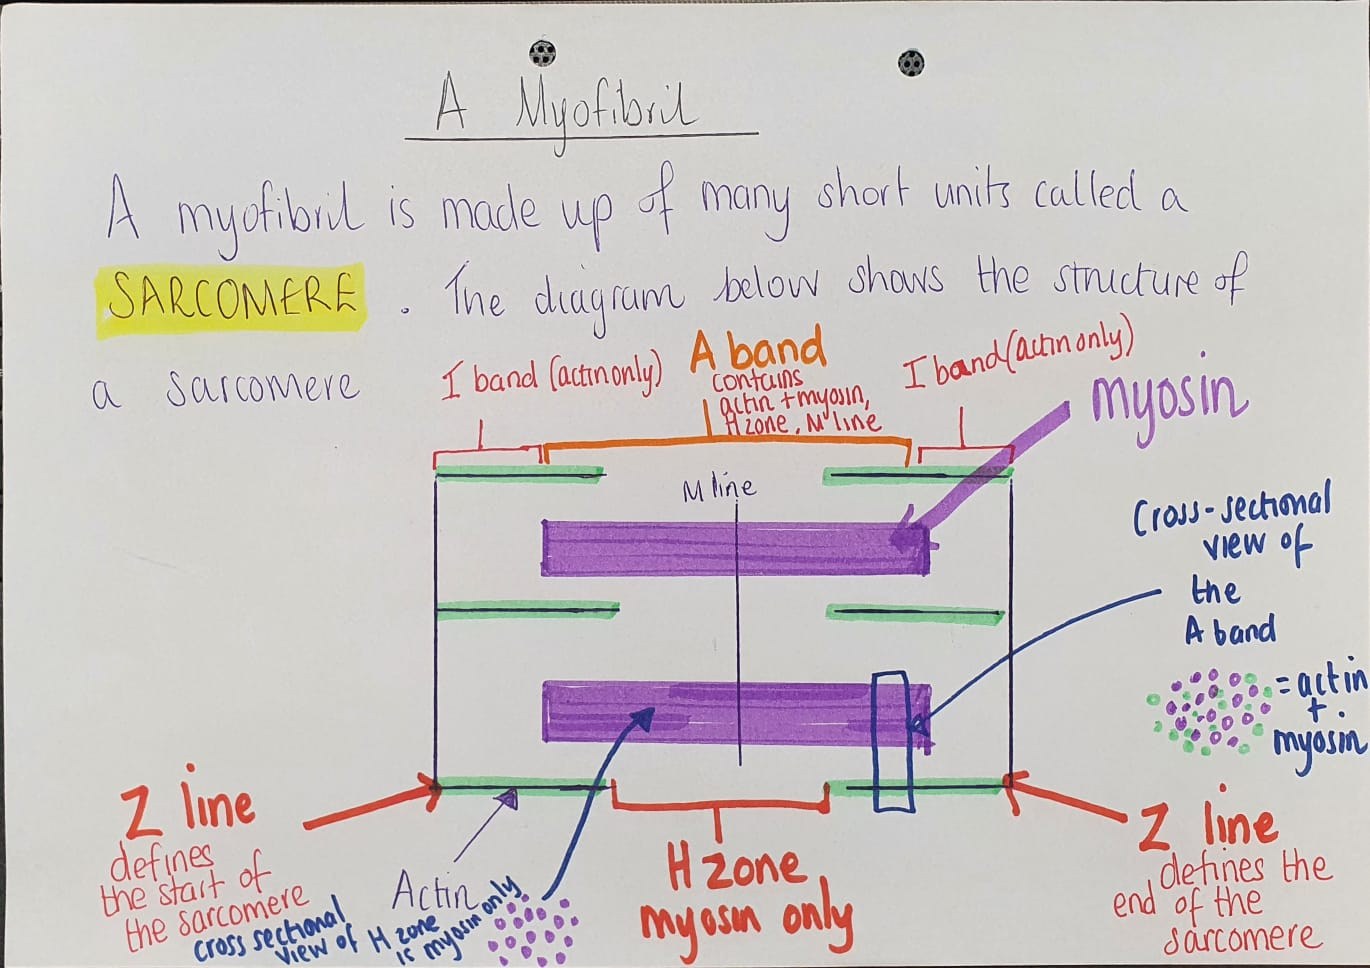 A Myofibril
A myofibril is made up of many short units called a
SARCOMERE. The diagram below shows the structure of
a sarcomere
I band (actin only)
A band
contains
actin + myosin,
H zone, M line
I band (actin only)
myosin
M line
Cross-sectional
view of
the
A band
= actin
+
myosin
Z line
defines
the start of
the sarcomere
Actin
cross sectional
view of H zone
is myosin only
H zone
myosin only
Z line
defines the
end of the
sarcomere